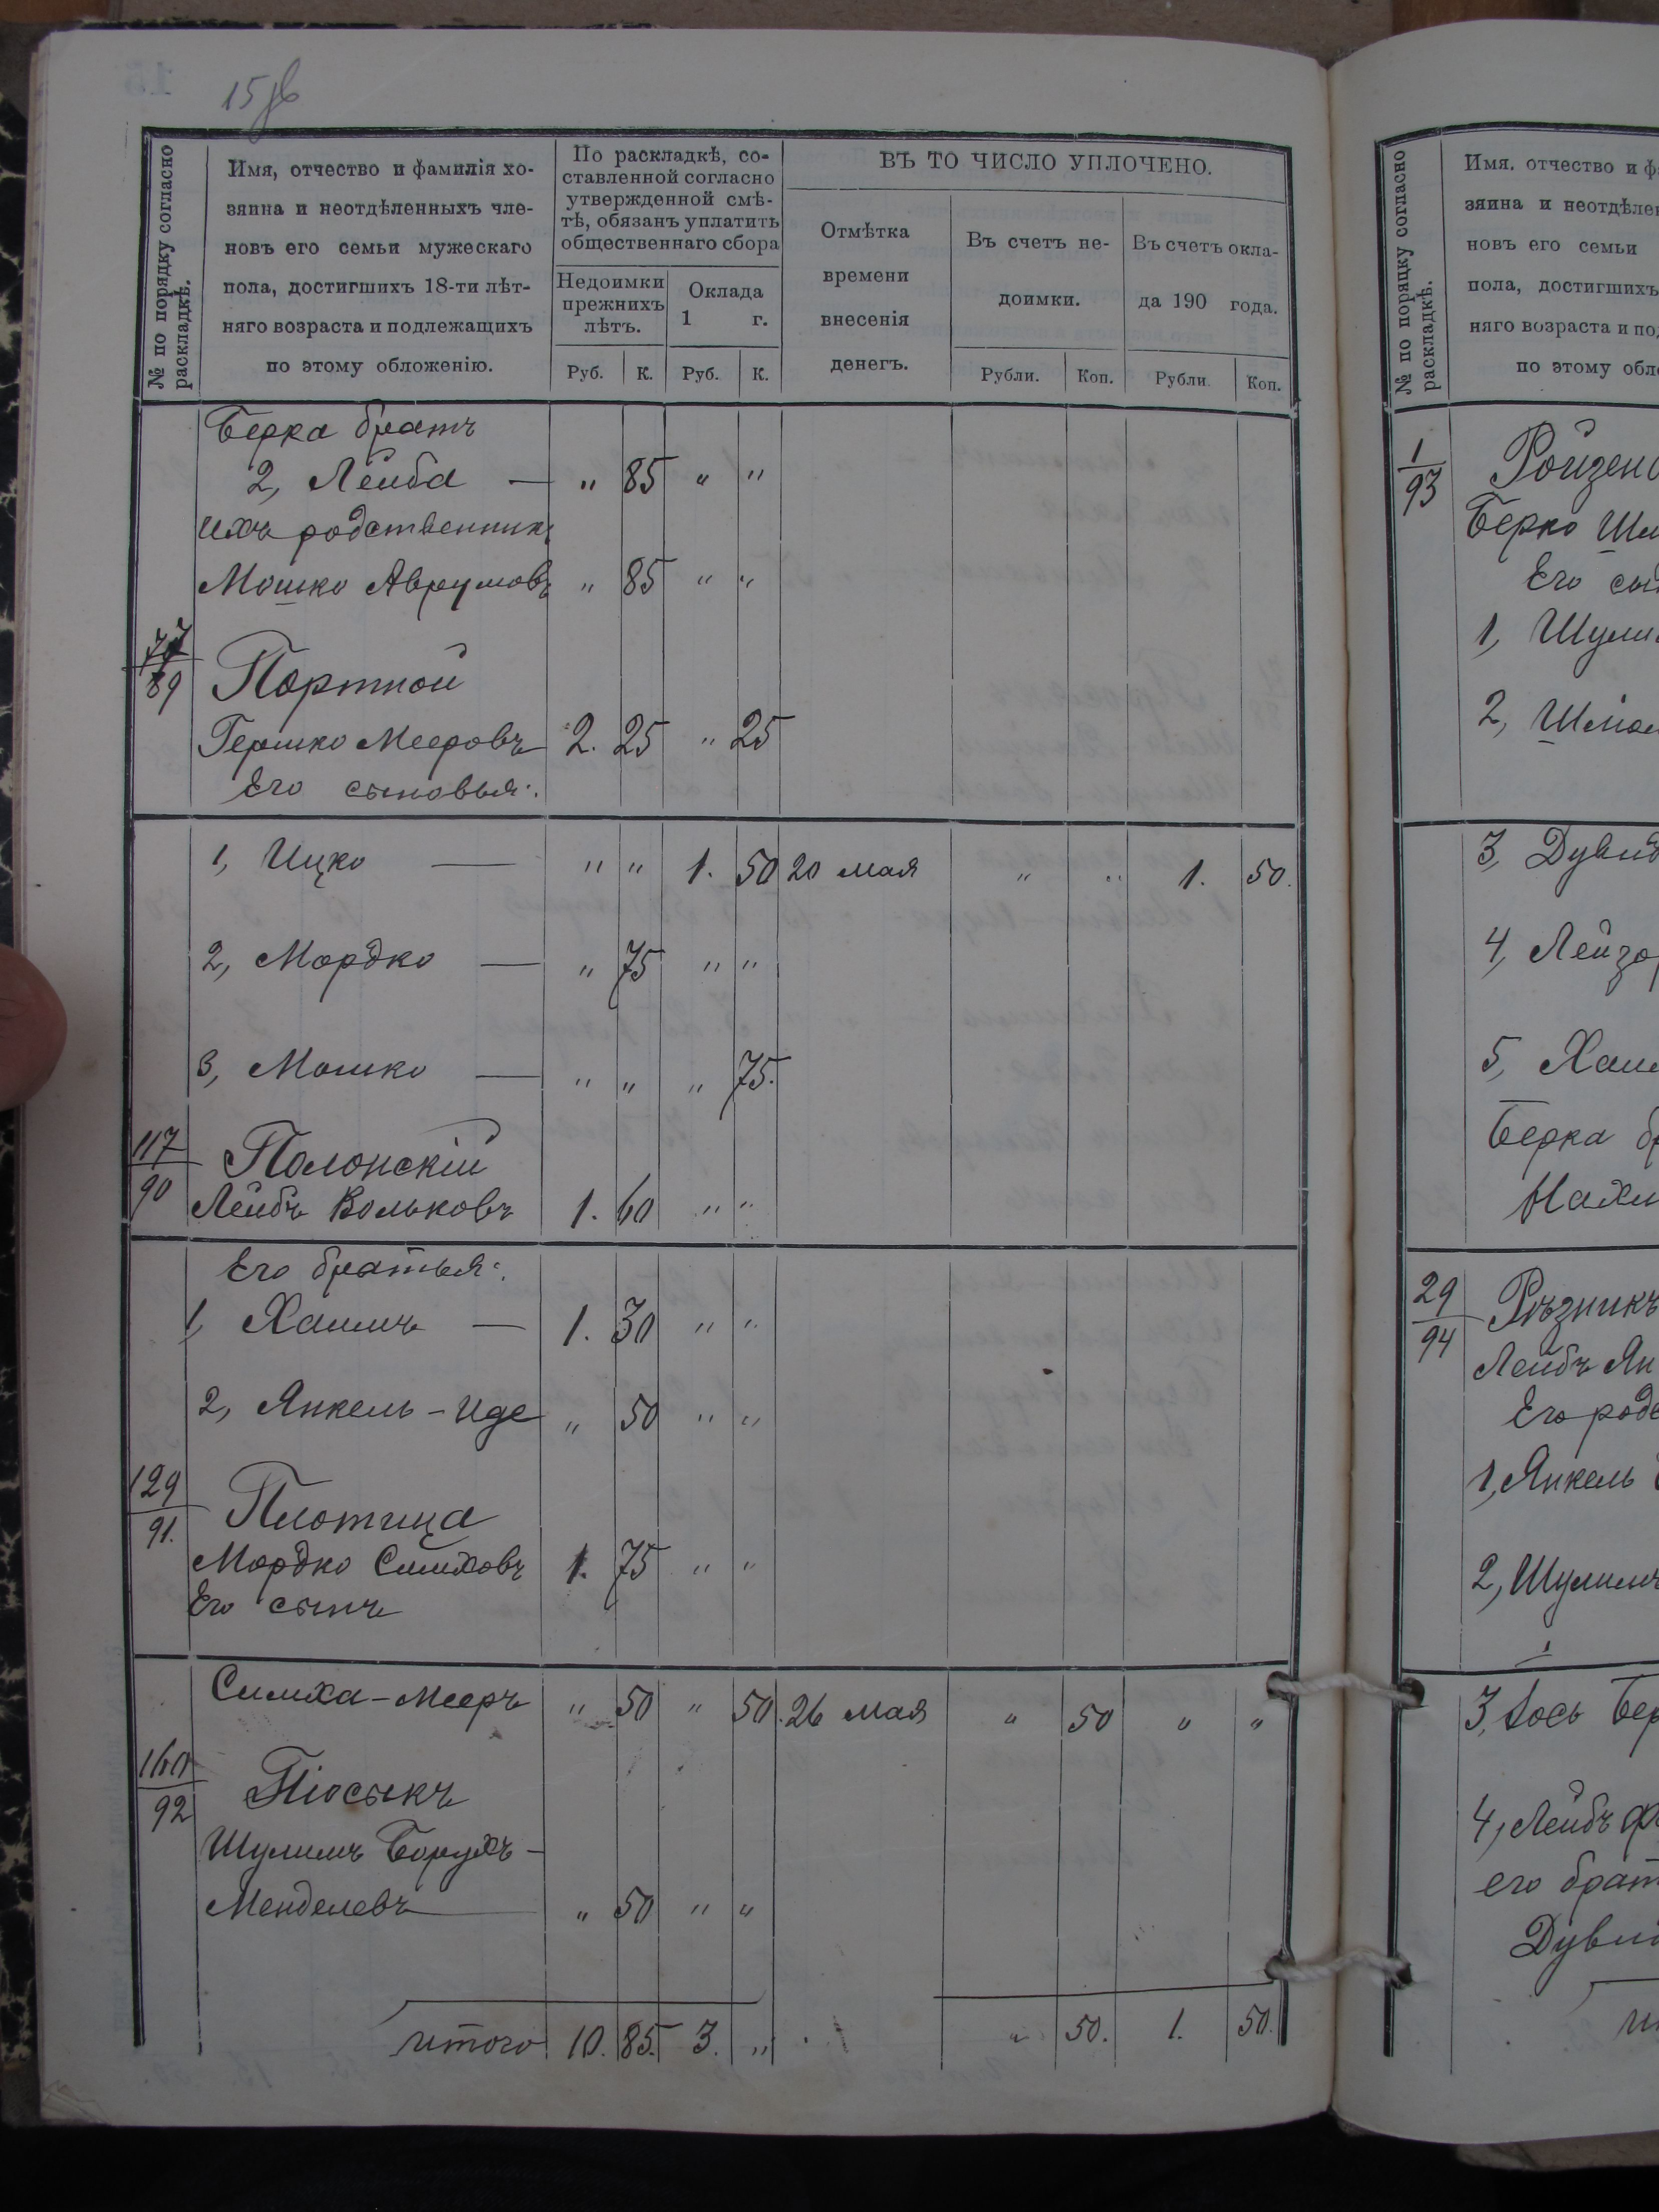 15
№ по порядку согласно раскладкѣ.
Имя, отчество и фамилія хо-
зяина и неотдѣленныхъ чле-
новъ его семьи мужескаго
пола, достигшихъ 18-ти лѣт-
няго возраста и подлежащихъ
по этому обложенію.
По раскладкѣ, со-
ставленной согласно
утвержденной смѣ-
тѣ, обязанъ уплатить
общественнаго сбора
Недоимки
прежнихъ
лѣтъ.
Оклада
1 г.
Руб. К. Руб. К.
ВЪ ТО ЧИСЛО УПЛОЧЕНО.
Отмѣтка
времени
внесенія
денегъ.
Въ счетъ не-
доимки.
Въ счетъ окла-
да 190 года.
Рубли. Коп. Рубли. Коп.
Берка братъ
2, Лейба — " 85 " "
Ихъ родственникъ
Мошко Аврумовъ " 85 " "
77/89 Портной
Гершко Мееровъ 2. 25 " 25
Его сыновья:
1, Ицко — " " 1. 50 20 мая " " 1. 50.
2, Мордко — " 75 " "
3, Мошко — " " " 75.
117/90 Полонскій
Лейбъ Вольковъ 1. 60 " "
Его братья:
1, Хаимъ — 1. 30 " "
2, Янкель-Иде " 50 " "
129/91. Плотица
Мордко Симховъ 1. 75 " "
Его сынъ
Симха-Мееръ " 50 " 50. 26 мая " 50 " "
160/92 Піосыкъ
Шулимъ Борухъ-
Менделевъ " 50 " "
итого 10. 85. 3. " " 50. 1. 50.
№ по порядку согласно раскладкѣ.
Имя. отчество и
зяина и
новъ его семьи
пола, достигшихъ
няго возраста и
по этому
1/93
Берко
Его
1,
2,
3,
4,
5,
Берка
29/94 Рѣзникъ
Лейбъ
Его
1, Янкель
2, Шулимъ
3,
4, Лейбъ
его